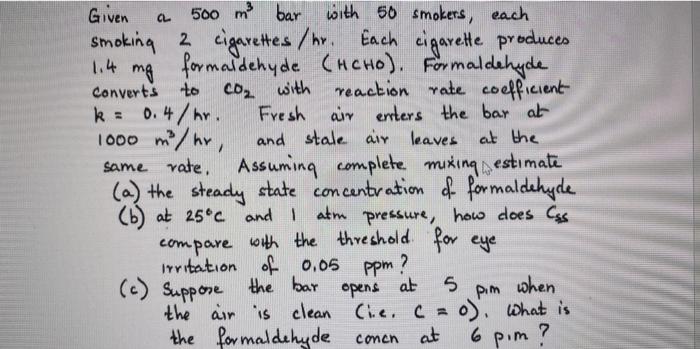 Given a 500 m³ bar with 50 smokers, each
smoking 2 cigarettes/hr. Each cigarette produces
1.4 mg formaldehyde (HCHO). Formaldehyde
converts to CO₂ with reaction rate coefficient
k = 0.4/hr. Fresh air enters the bar at
1000 m³/hr, and stale air leaves at the
same rate. Assuming complete mixing, estimate
(a) the steady state concentration of formaldehyde
(b) at 25°C and 1 atm pressure, how does Css
compare with the threshold for eye
irritation of 0.05 ppm?
(c) Suppose the bar opens at 5 pim when
the air is clean (i.e. C = 0). What is
the formaldehyde concn at 6 p.m?